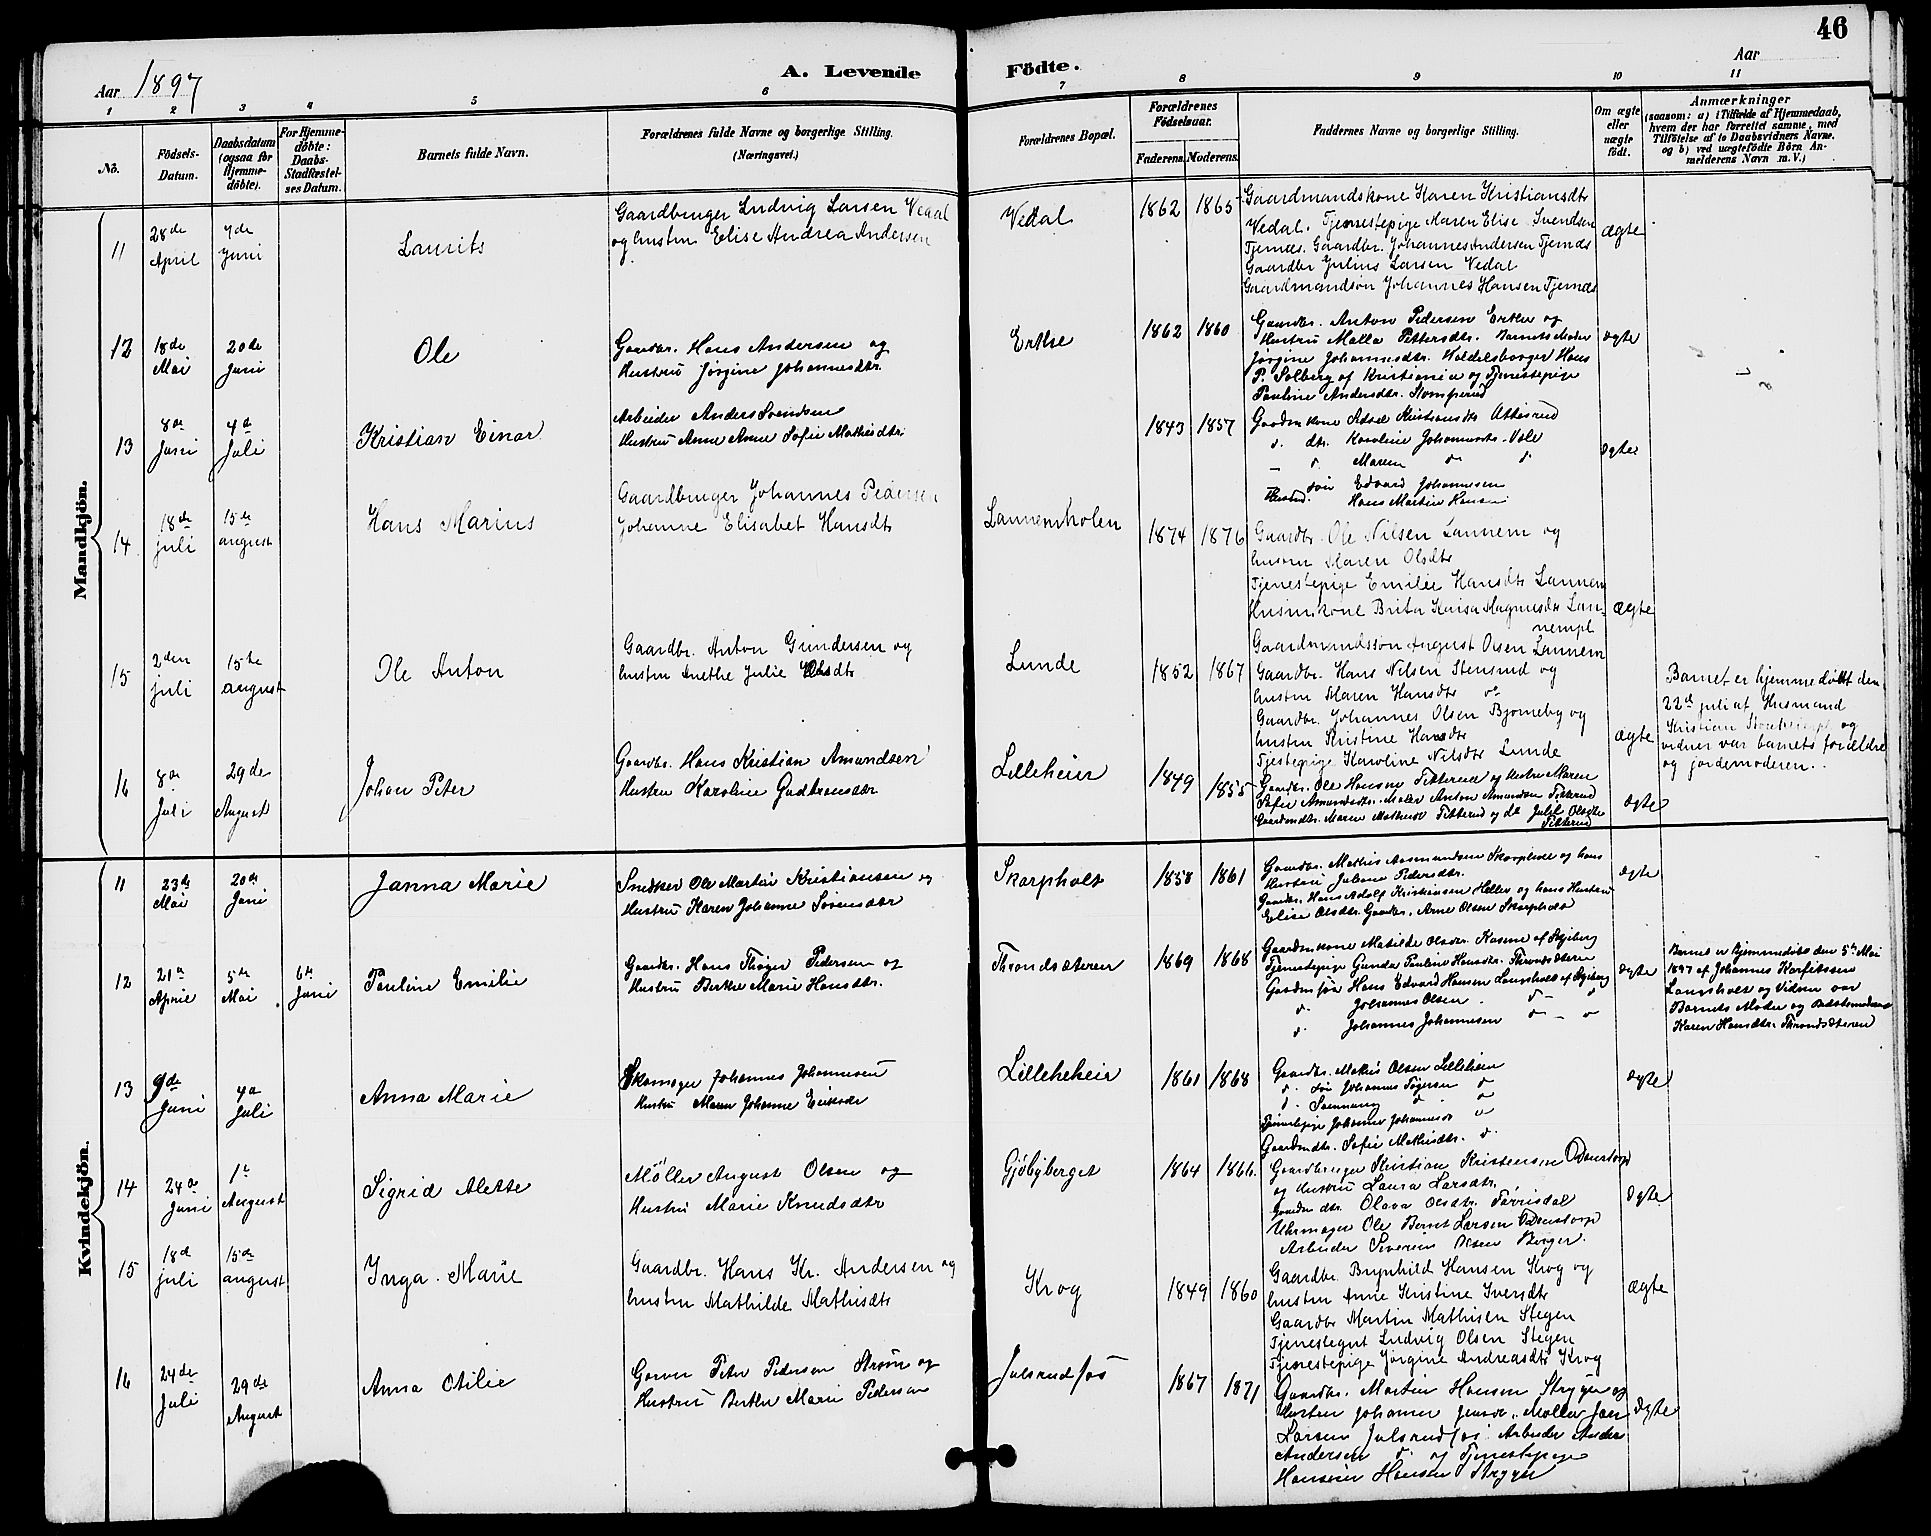 46
Aar 1897
A. Levende Födte.
Aar
1 2 3 4 5 6 7 8 9 10 11
No.
Födsels-Datum.
Daabsdatum (ogsaa for Hjemme-döbte).
For Hjemme-döbte: Daabs-Stadfæstel-ses Datum.
Barnets fulde Navn.
Forældrenes fulde Navne og borgerlige Stilling. (Næringsvei.)
Forældrenes Bopæl.
Forældrenes Födselsaar.
Faderens. Moderens.
Faddernes Navne og borgerlige Stilling.
Om ægte eller uægte födt.
Anmærkninger
(saasom: a) i Tilfælde af Hjemmedaab, hvem der har forrettet samme, med Tilföielse af to Daabsvidners Navne. og b) ved uægtefödte Börn An-melderens Navn m. V.)
Mandkjön.
11
28de April
7de Juni
Laurits
Gaardbruger Ludvig Larsen Vedal
og hustru Elise Andrea Andersen
Vedal
1862 1865
Gaardmandskone Karen Kristiansdtr
Vedal. Tjenestepige Maren Elise Svendsen
Tjernæs. Gaardbr. Johannes Andersen Tjernæs
Gaardbr Julius Larsen Vedal
Gaardmandsøn Johannes Hansen Tjernæs
ægte
12
18de Mai
20de Juni
Ole
Gaardbr. Hans Andersen og
Hustru Jørgine Johannesdtr.
Ertke
1862 1860
Gaardbr. Anton Pedersen Ertke og
Hustru Malla Pettersdtr. Barnets Moder
Jørgine Johannesdtr. Hans
P. Solberg af Kristiania og Tjenestepige
Pauline Andersdtr. Stomperud
ægte
13
8de Juni
4de Juli
Kristian Einar
Arbeider Anders Svendsen
Hustru Anne Anne Sofie Mathisdtr.
1843 1857
Gaardmkone Kristiansdtr
d. dtr. Karoline Johannesdtr. Vole
d. Maren d. d.
søn Edvard Johannesen
Hans Martin Hansen
ægte
14
18de juli
15de august
Hans Marius
Gaardbruger Johannes Pedersen
Johanne Elisabet Hansdtr
Lannemholen
1874 1876
Gaardbr. Ole Nilsen Lannem og
hustru Maren Olsdtr
Tjenestepige Emilie Hansdtr Lannem
Husmkone Brita Kaisa Magnusdtr Lan-
nempl
Gaardmandssøn August Olsen Lannem
ægte
15
2den juli
15te august
Ole Anton
Gaardbr. Anton Gundersen og
hustru Anethe Julie Olsdtr
Lunde
1852 1867
Gaardbr. Hans Nilsen Stensrud og
hustru Maren Hansdtr do
Gaardbr. Johannes Olsen Bjørneby og
hustru Kristine Hansdtr
Tjestepige Karoline Nilsdtr Lunde
ægte
Barnet er hjemmedøbt den
22de juli af Husmand
Kristian og
vidner var barnets forældre
og jordemoderen.
16
8de Juli
29de August
Johan Peter
Gaardbr. Hans Kristian Amundsen
Hustru Karoline Gudbransdtr
Lilleheier
1849 1855
Gaardbr. Ole Hansen Titterud og Hustru Maren
Sofie Amundsdtr. Maler Anton Amundsen Titterud
Gaardmdtr. Maren Mathisdtr Titterud og do Julie Olsdtr
Titterud
ægte
Kvindekjön.
11
23de Mai
20de Juni
Janna Marie
Snedker Ole Martin Kristiansen og
Hustru Karen Johanne Sørensdtr
Skarpholt
1858 1861
Gaardbr. Mathis Aasmundsen Skarpholt og hans
Hustru Juliane Pedersdtr.
Gaardbr. Hans Adolf Kristiansen Heller og hans Hustru
Elise Olsdtr. Gaardbr. Arne Olsen Skarpholt
ægte
12
21de April
5te Mai
6te Juni
Pauline Emilie
Gaardbr. Hans Thøger Pedersen og
Hustru Berthe Marie Hansdtr.
Throndsæteren
1869 1868
Gaardmkone Matilde Olsdtr. Kasene af Skjeberg
Tjenestepige Gunda Pauline Hansdtr. Throndsæteren
Gaardmsøn Hans Edvard Hansen Launholt af Skjeberg
d. Johannes Olsen d. d.
d. Johannes Johannesen d. d.
ægte
Barnet er hjemmedøbt den 5te Mai
1897 af Johannes Korfitssen
Launholt og Vidner var
Barnets Moder og
Karen Hansdtr. Throndsæteren
13
9de Juni
4de Juli
Anna Marie
Skomager Johannes Johannesen
Hustru Maren Johanne Eriksdtr
Lilleheier
1861 1868
Gaardbr. Mathis Olsen Lilleheier
d. søn Johannes Tøgersen d.
d. d. d.
Tjenestepige Johanne Johannesdtr d.
Gaardmdtr. Sofie Mathisdtr. d.
ægte
14
24de Juni
1te August
Sigrid Alette
Møller August Olsen og
Hustru Marie Knudsdtr
Gjøbyberget
1864 1866
Gaardbruger Kristian Kristensen Odenstorp
og Hustru Laura Larsdtr.
Gaardm dtr. Olava Olsdtr. Tørrisdal
Uhrmager Ole Bernt Larsen Odenstorp
Arbeider Severin Olsen Berger.
ægte
15
18de juli
15de august
Inga Marie
Gaardbr. Hans Kr. Andersen og
hustru Mathilde Mathisdtr
Krog
1849 1860
Gaardbr. Brynhild Hansen Krog og
hustru Anne Kristine Iversdtr
Gaardbr Martin Mathisen Stegen
Tjenestegut Ludvig Olsen Stegen
Tjenestepige Jørgine Andreasdtr Krog
ægte
16
24de Juli
29de August
Anna Otilie
Garver Peter Pedersen Strøm og
Hustru Berthe Marie Pedersen
Julsrudfos
1867 1871
Gaardbr. Martin Hansen Stryger og
Hustru Johanne Jensdtr. Møller Jan
Larsen Julsrudfos. Arbeider Anders
Andersen d. og Tjenestepige
Hansine Hansen Stryger
ægte